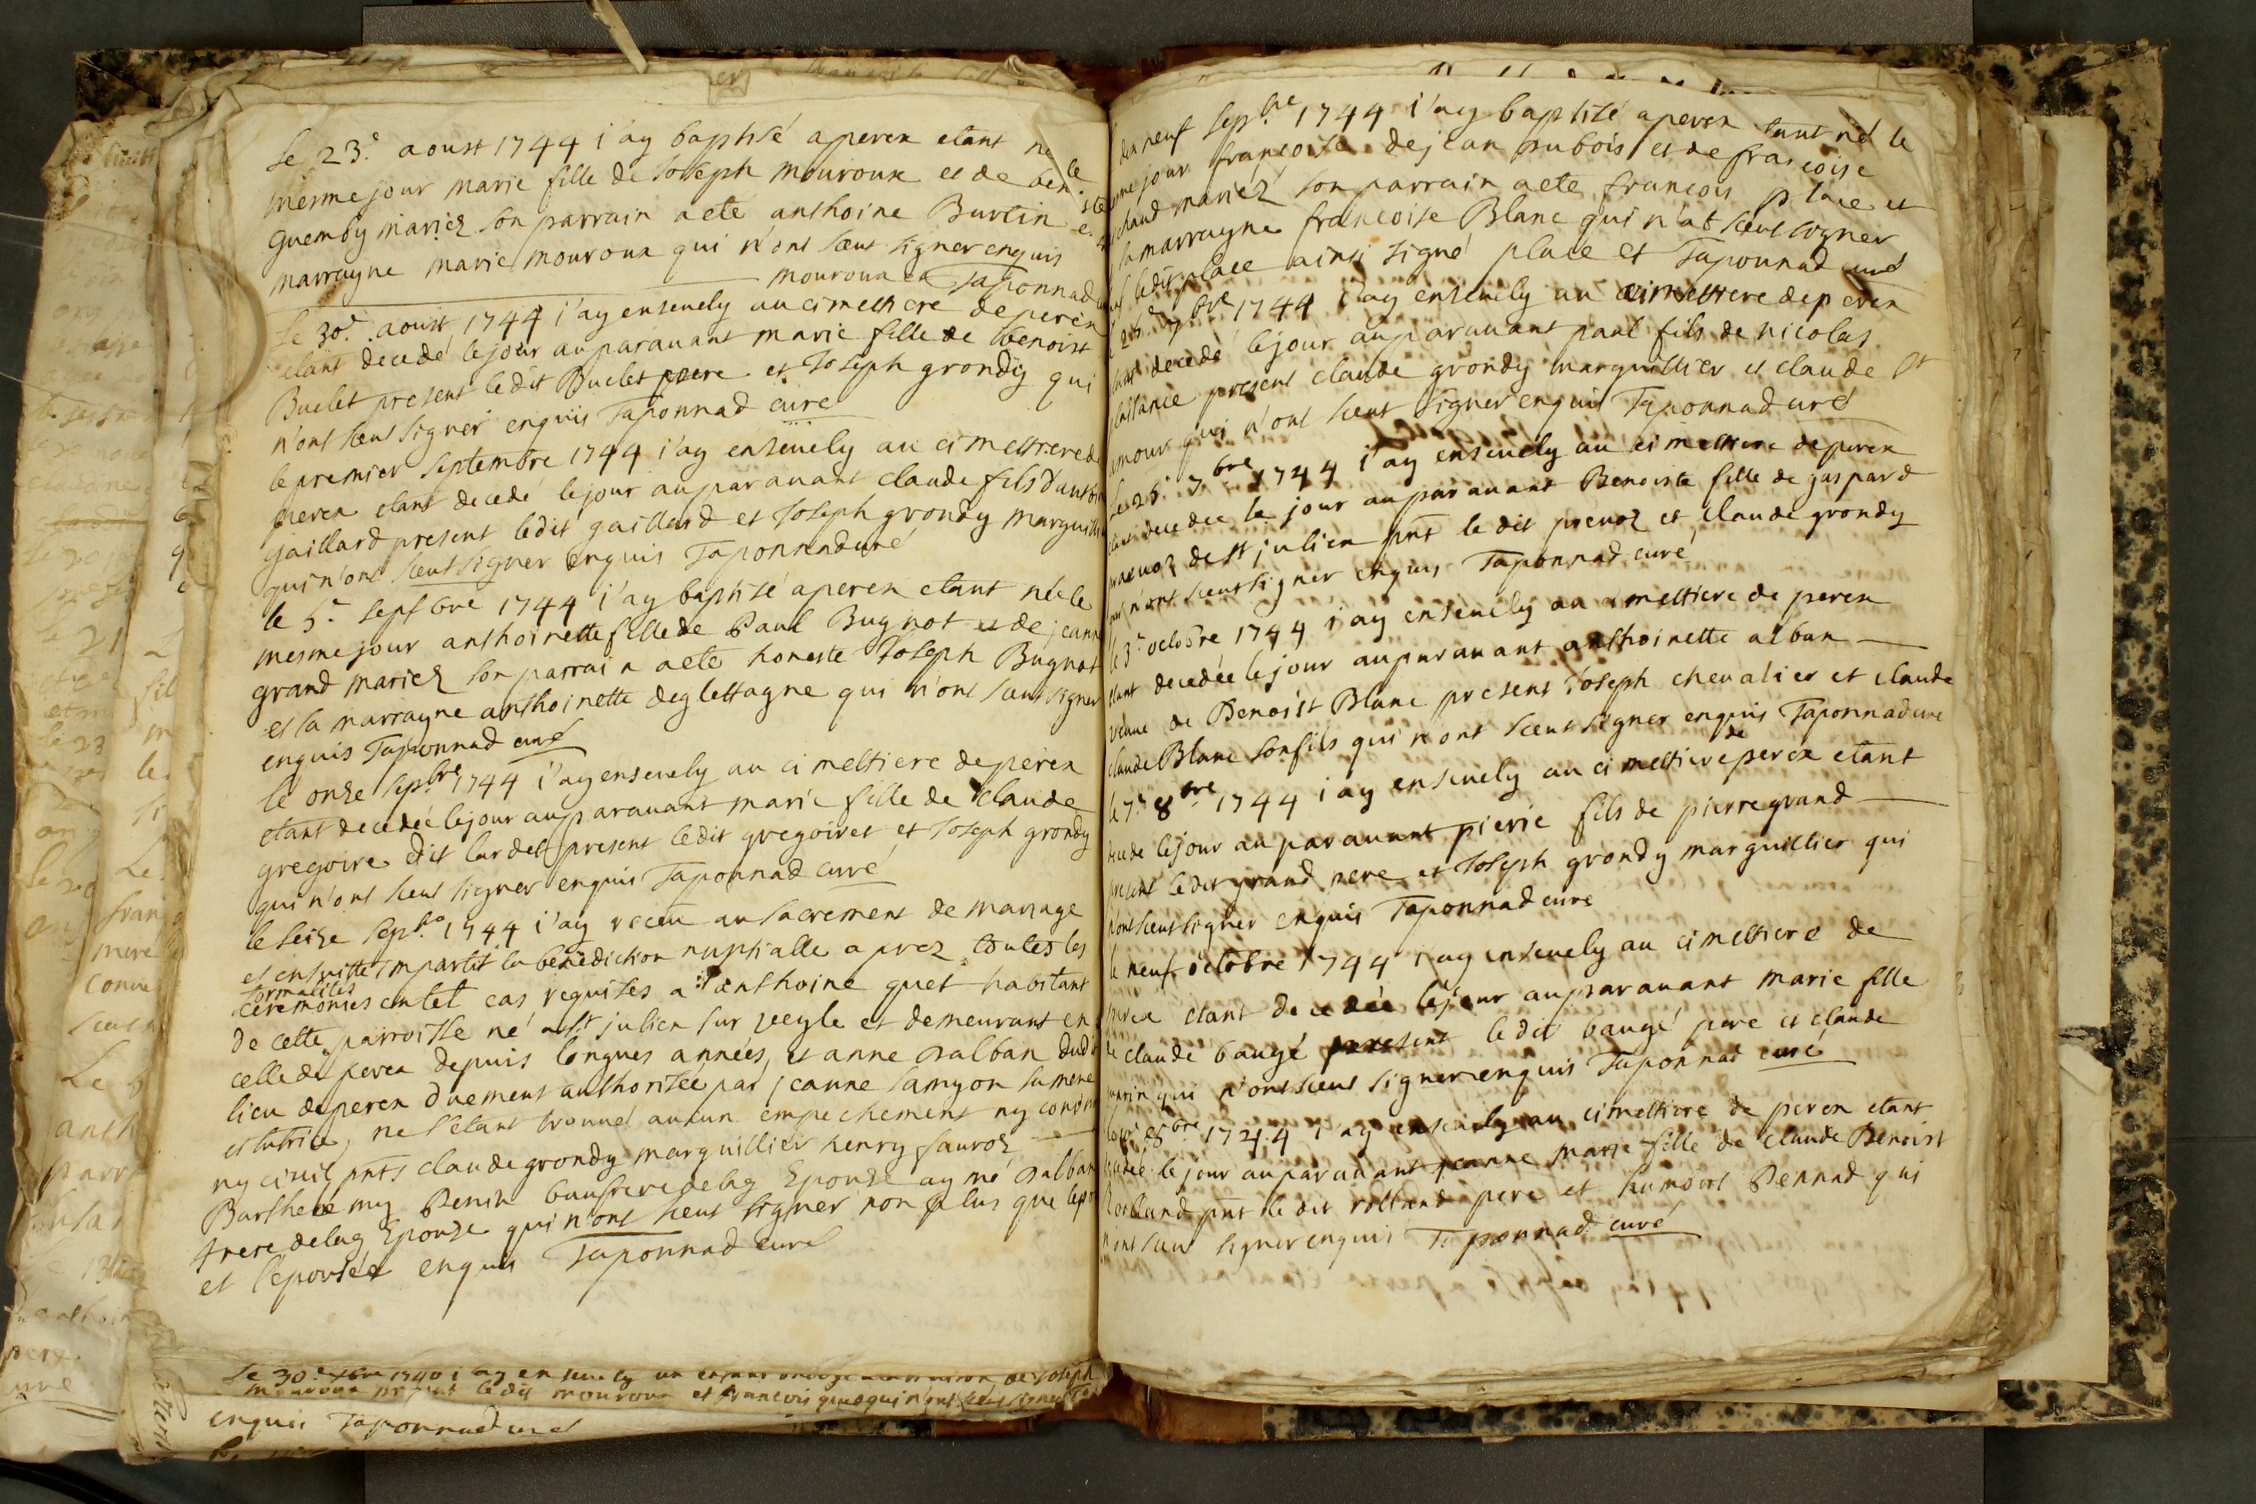 Le 23.e aoust 1744 i'ay baptisé a perex etant né le
mesme jour marie fille de Joseph mouroux et de
guemby mariez son parrain a eté anthoine Burtin
marrayne marie mouroux qui n'ont sceut signer enquis
mouroux Taponnad
Le 30.e aoust 1744 i'ay enseuely au cimettiere de perex
etant decedé le jour auparauant marie fille de benoist
Buclet present le dit Buclet pere et Joseph grondy qui
n'ont sceut signer enquis Taponnad curé
le premier septembre 1744 i'ay enseuely au cimettiere de
perex etant decedé le jour auparauant claude fils d'
gaillard present le dit gaillard et Joseph grondy
qui n'ont sceut signer enquis Taponnad curé
le 5.e sept bre 1744 i'ay baptisé a perex etant née le
mesme jour anthoinette fille de Paul Bugnot et de jeanne
grand mariez son parrain a eté honeste Joseph Bugnot
et la marrayne anthoinette deglettagne qui n'ont sceut signer
enquis Taponnad curé
le onze sep.bre 1744 i'ay enseuely au cimettiere de perex
etant decedée le jour auparauant marie fille de claude
gregoire dit lardet present le dit gregoiret et Joseph grondy
qui n'ont sceut signer enquis Taponnad curé
le seize sep.bre 1744 i'ay receu au sacrement de mariage
et ensuitte impartit la benediction nuptialle aprez toutes les
formalites
ceremonies en tel cas requises a anthoine guet habitant
de cette parroisse né a St julien sur veyle et demeurant en
celle de perex depuis longues années, et anne dalban dudit
lieu de perex duement authorisée par jeanne samyon sa mere
et tutrice, ne s'etant trouué aucun empechement ny
ny ciuil pnts claude grondy marguillier henry sauroz
Barthelé my Benin baufrere delag Epouse aymé dalban
frere delag Epouse qui n'ont sceut signer non plus que
et l'epousée enquis Taponnad curé
Le 30.e 1740 i'ay enseuely un enfant de Joseph
mouroux present le dit mouroux et francois qui n'ont sceut signer
enquis Taponnad curé
neuf sep.bre 1744 i'ay baptisé a perex etant né le
jour francoise de jean dubois et de francoise
mariez son parrain a eté francois place et
la marrayne francoise Blanc qui n'at sceut signer
le dit place ainsi signé place et Taponnad curé
7bre 1744 i'ay enseuely au cimettiere de perex
etant decedé le jour auparauant paul fils de nicolas
present claude grondy marguillier et claude St
amour qui n'ont sceut signer enquis Taponnad curé
Le 26.e 7bre 1744 i'ay enseuely au cimettiere de perex
etant decedée le jour auparauant Benoiste fille de gaspard
preuoz de st julien pnt le dit preuoz et claude grondy
n'ont sceut signer enquis Taponnad curé
le 3.e octobre 1744 i'ay enseuely au cimettiere de perex
etant decedée le jour auparauant anthoinette alban
veuue de Benoist Blanc present Joseph cheualier et claude
claude Blanc son fils qui n'ont sceut signer enquis Taponnad curé
de
le 7.e 8bre 1744 i'ay enseuely au cimettiere perex etant
decedé le jour auparauant pierre fils de pierre grand
present le dit grand pere et Joseph grondy marguillier qui
n'ont sceut signer enquis Taponnad curé
le neuf octobre 1744 i'ay enseuely au cimettiere de
perex etant decedée le jour auparauant marie fille
de claude baugé present le dit baugé pere et claude
marin qui n'ont sceut signer enquis Taponnad curé
8bre 1744 i'ay enseuely au cimettiere de perex etant
decedée le jour auparauant jeanne marie fille de claude Benoist
Rolland pnt le dit rolland pere et humbert Pennad qui
n'ont sceut signer enquis Taponnad curé